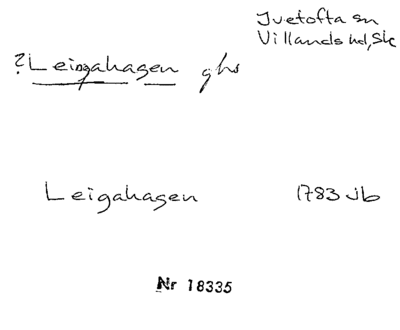 Ivetofta sn
Villands hd, Sk
?Leingahagen ghs
Leigahagen 1783 Jb
Nr 18335